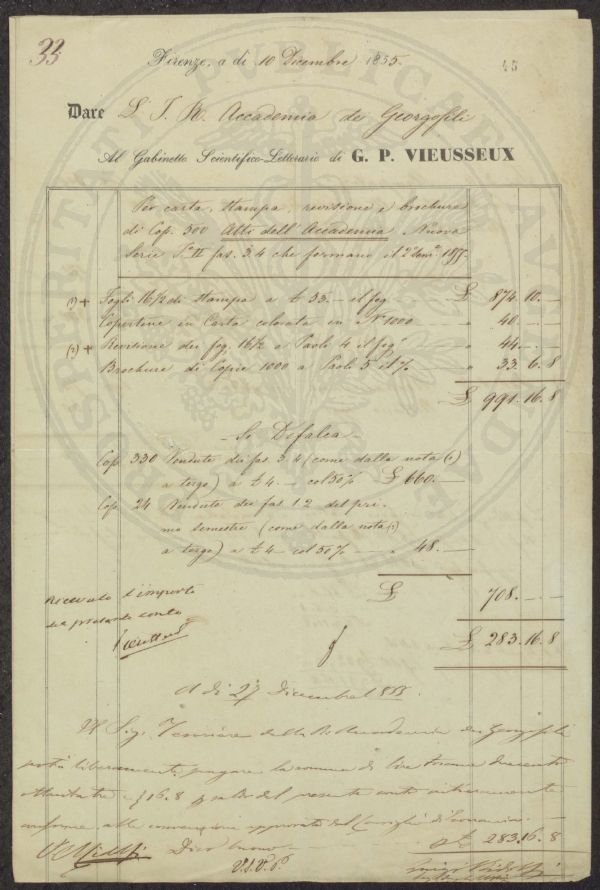 33
45
Firenze, a dì 10 Dicembre 1855.
Dare L'I. R. Accademia de Georgofili
Al Gabinetto Scientifico-Letterario di G. P. VIEUSSEUX
Per carta, stampa, revisione, e brochure
di Cop. 500 Atti dell'Accademia Nuova
Serie T. II fas. 3.4 che formano il 2° Sem.e 1855.
(1) + Fogli 16½ di stampa a £ 53.— il fog £ 874.10.—
Copertine in Carta colorata in N° 1000 " 40.—.—
(2) + Revisione dei fog. 16½ a Paoli 4 il fog° " 44.—.—
Brochure di Copie 1000 a Paoli 5 il % " 33.6.8
£ 991.16.8
— Si Defalca —
Cop. 330 Vendute dei fas. 3.4 (come dalla nota (1)
a tergo) a £ 4.— col 50% £ 660.—
Cop. 24 Vendute dei fas 1.2 del pri-
mo semestre (come dalla nota (1)
a tergo) a £ 4— col 50% — " 48.—
£ 708.—.—
Ricevuto l'importo
del presente conto
Vieusseux
£ 283.16.8
A dì 27 Dicembre 1855.
Il Sig. Tesoriere della R. Accademia dei Georgofili
potrà liberamente pagare la somma di lire toscane duecento
ottantatre 16.8 saldo del presente conto interamente
conforme alle convenzioni approvate dal Consiglio d'Economia.
£ 283.16.8
PROSPERITATI PUBLICAE AUGENDAE